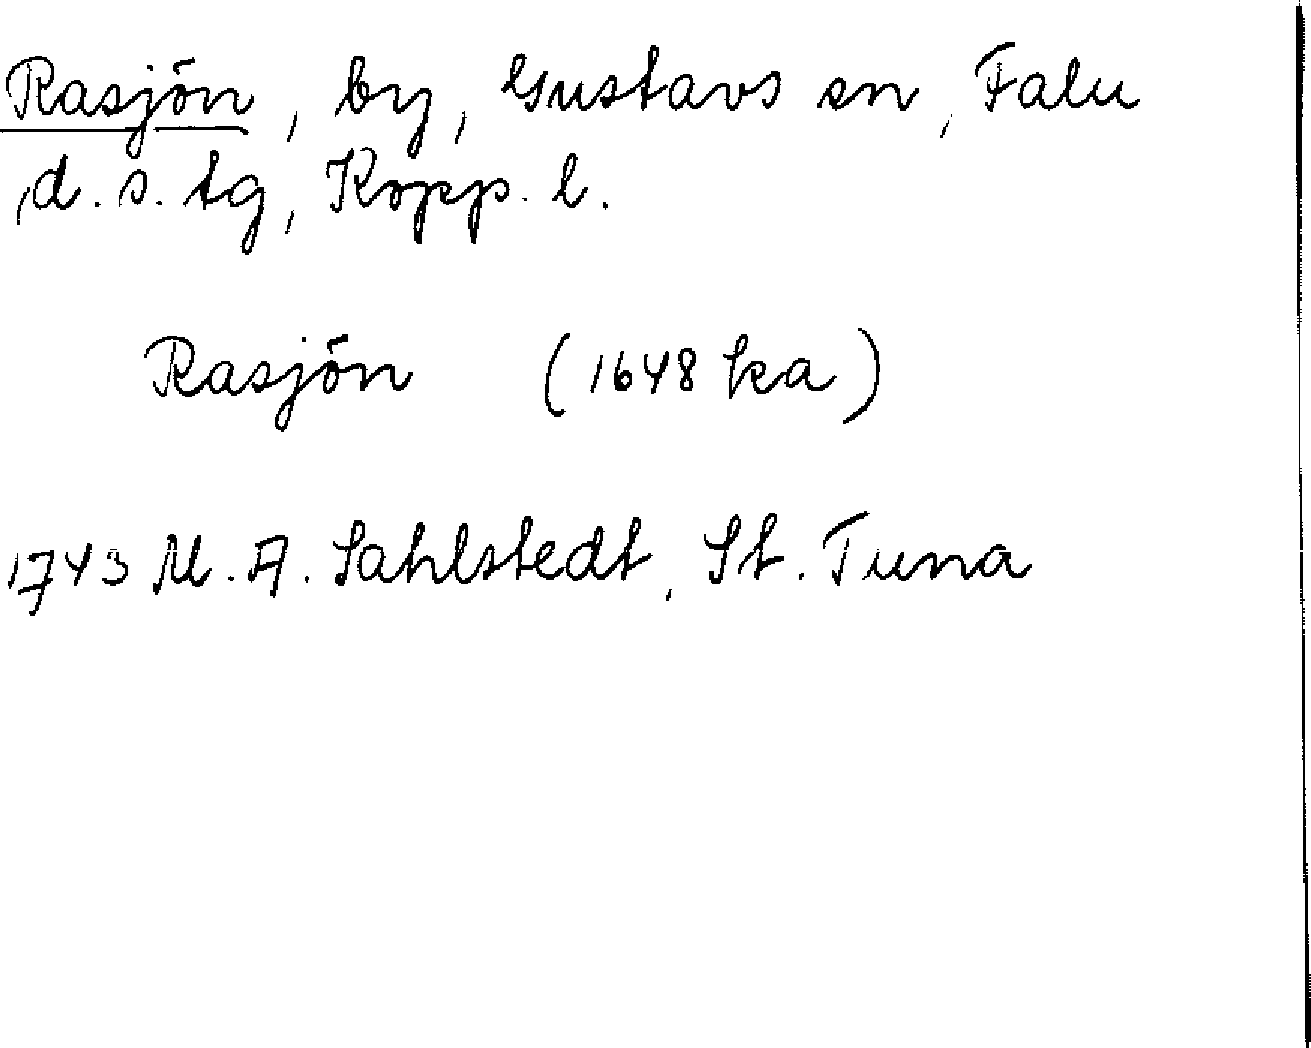 Rasjön, by, Gustavs sn, Falu
d. s. tg, Kopp. l.
Rasjön (1648 ka)
1743 M. A. Sahlstedt, St. Tuna